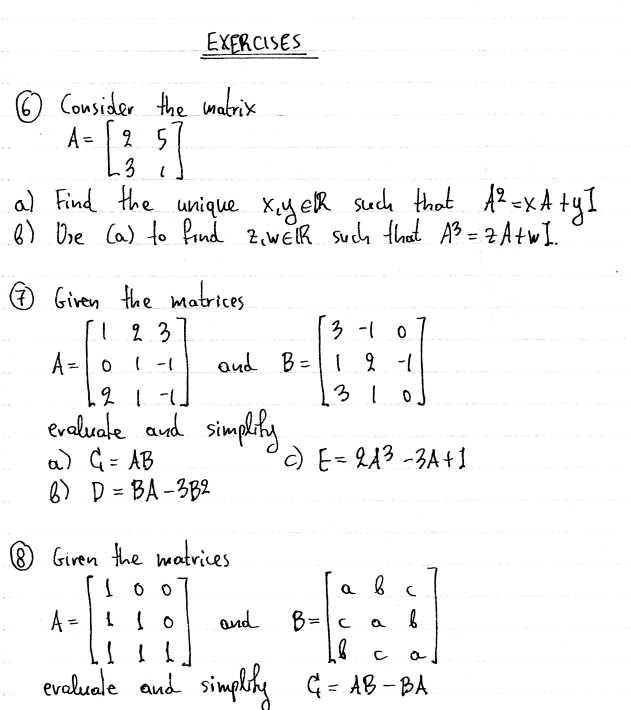 EXERCISES
⑥ Consider the matrix
A = [ 2 5
3 1 ]
a) Find the unique x,y∈ℝ such that A² = xA + yI
b) Use (a) to find z,w∈ℝ such that A³ = zA + wI.
⑦ Given the matrices
[ 1 2 3 ] [ 3 -1 0 ]
A = [ 0 1 -1 ] and B = [ 1 2 -1 ]
[ 2 1 -1 ] [ 3 1 0 ]
evaluate and simplify
a) C = AB c) E = 2A³ - 3A + I
b) D = BA - 3B²
⑧ Given the matrices
[ 1 0 0 ] [ a b c ]
A = [ 1 1 0 ] and B = [ c a b ]
[ 1 1 1 ] [ b c a ]
evaluate and simplify C = AB - BA